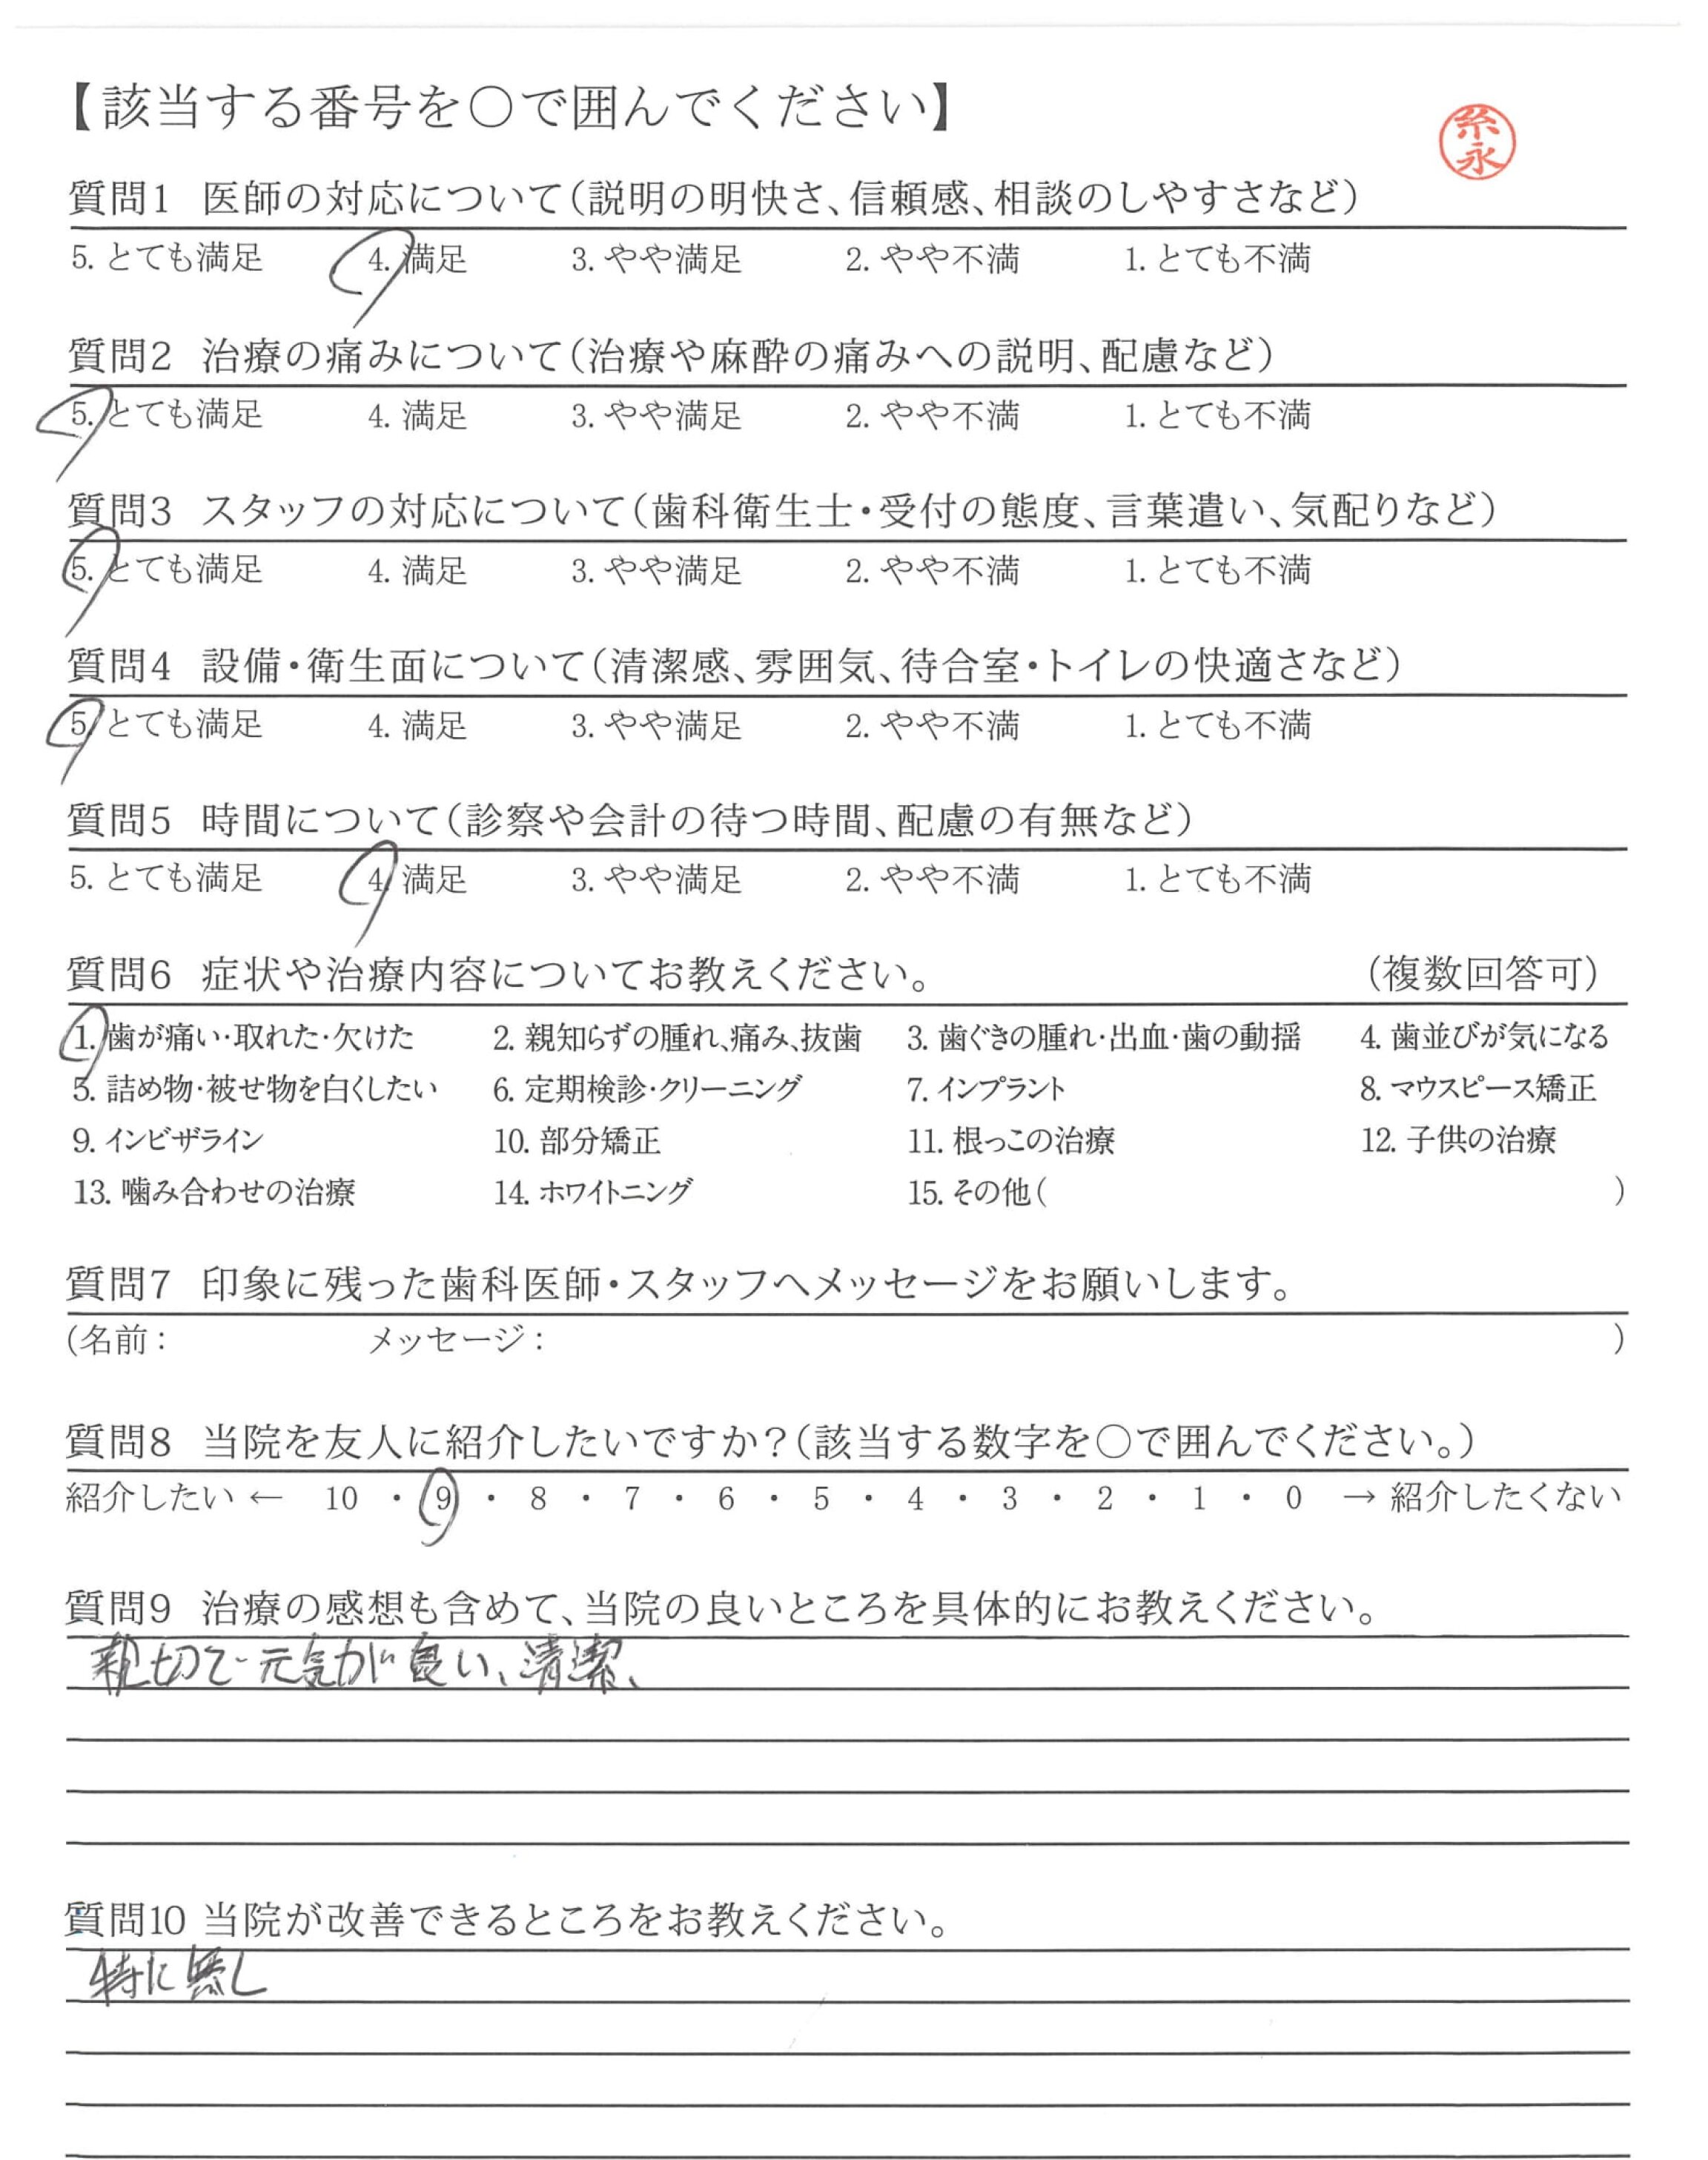 【該当する番号を○で囲んでください】
糸永
質問1 医師の対応について(説明の明快さ、信頼感、相談のしやすさなど)
5. とても満足 4. 満足 3. やや満足 2. やや不満 1. とても不満
質問2 治療の痛みについて(治療や麻酔の痛みへの説明、配慮など)
5. とても満足 4. 満足 3. やや満足 2. やや不満 1. とても不満
質問3 スタッフの対応について(歯科衛生士・受付の態度、言葉遣い、気配りなど)
5. とても満足 4. 満足 3. やや満足 2. やや不満 1. とても不満
質問4 設備・衛生面について(清潔感、雰囲気、待合室・トイレの快適さなど)
5. とても満足 4. 満足 3. やや満足 2. やや不満 1. とても不満
質問5 時間について(診察や会計の待つ時間、配慮の有無など)
5. とても満足 4. 満足 3. やや満足 2. やや不満 1. とても不満
質問6 症状や治療内容についてお教えください。 (複数回答可)
1. 歯が痛い・取れた・欠けた 2. 親知らずの腫れ、痛み、抜歯 3. 歯ぐきの腫れ・出血・歯の動揺 4. 歯並びが気になる
5. 詰め物・被せ物を白くしたい 6. 定期検診・クリーニング 7. インプラント 8. マウスピース矯正
9. インビザライン 10. 部分矯正 11. 根っこの治療 12. 子供の治療
13. 噛み合わせの治療 14. ホワイトニング 15. その他( )
質問7 印象に残った歯科医師・スタッフへメッセージをお願いします。
(名前: メッセージ: )
質問8 当院を友人に紹介したいですか?(該当する数字を○で囲んでください。)
紹介したい ← 10 ・ 9 ・ 8 ・ 7 ・ 6 ・ 5 ・ 4 ・ 3 ・ 2 ・ 1 ・ 0 → 紹介したくない
質問9 治療の感想も含めて、当院の良いところを具体的にお教えください。
親切で元気が良い、清潔、
質問10 当院が改善できるところをお教えください。
特に無し